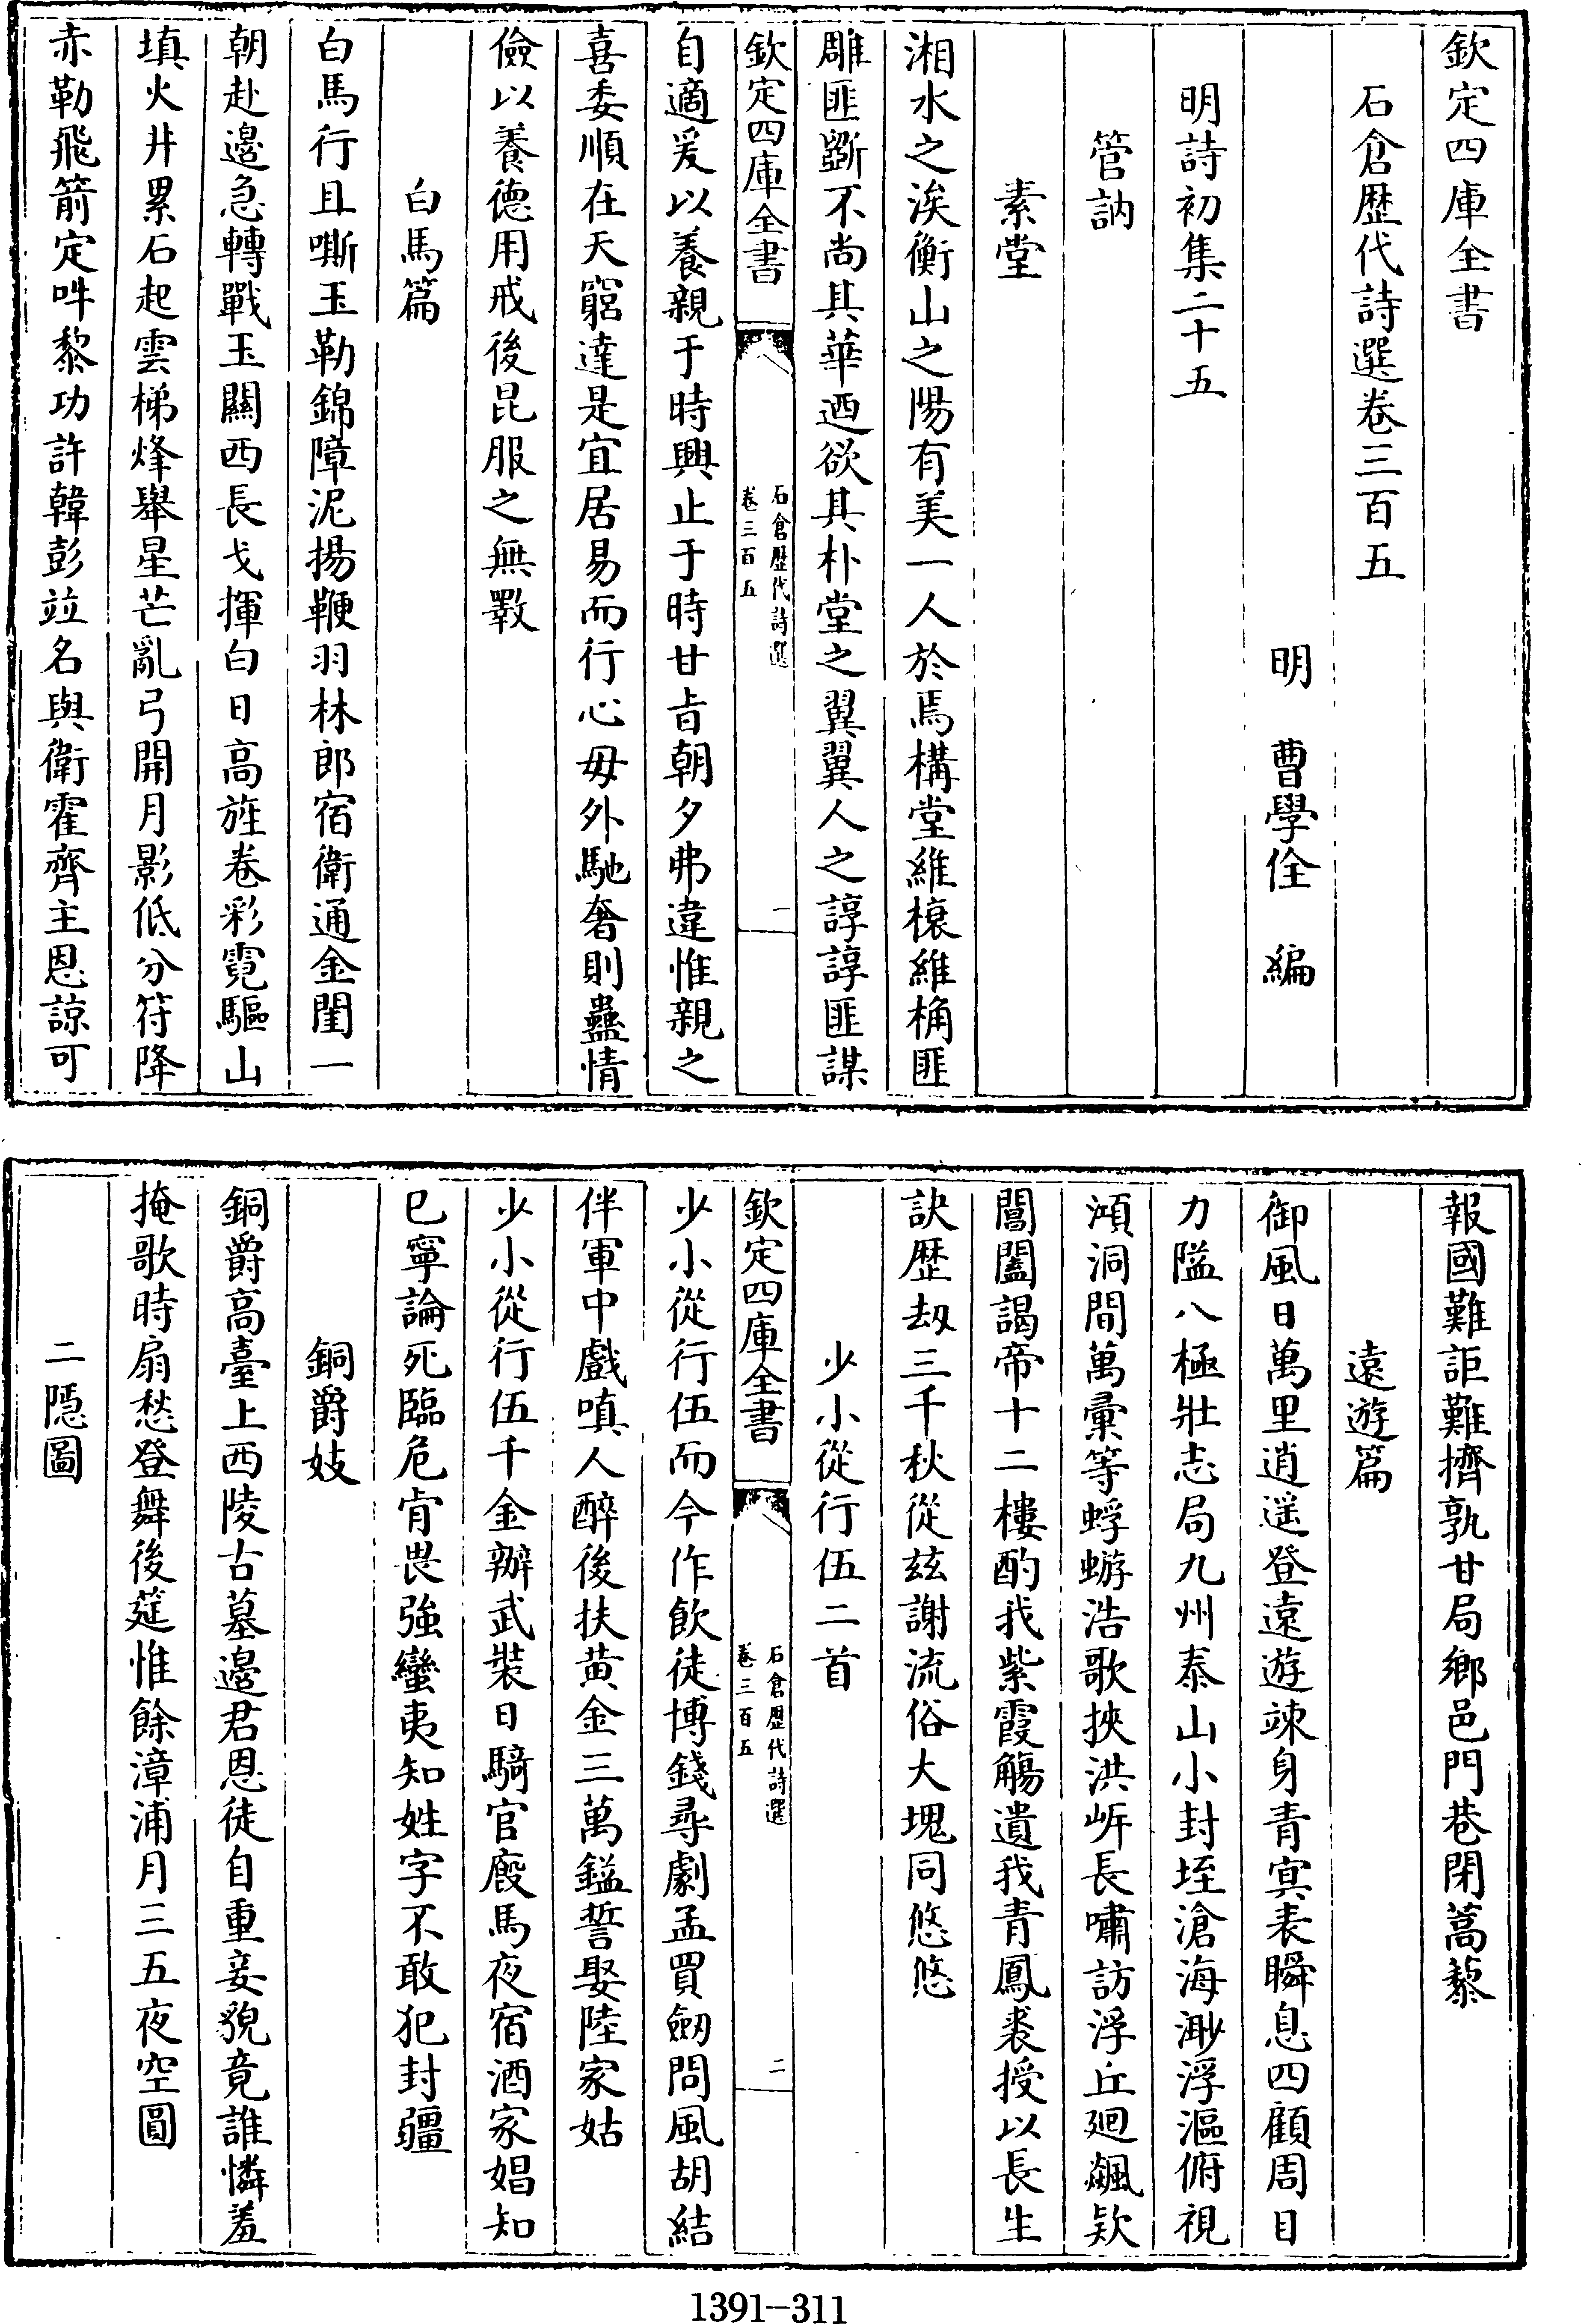 欽定四庫全書
石倉歷代詩選卷三百五
明　曹學佺　編
明詩初集二十五
管訥
素堂
湘水之涘衡山之陽有美一人於焉構堂維榱維桷匪
雕匪斵不尚其華迺欲其朴堂之翼翼人之諄諄匪謀
欽定四庫全書
石倉歷代詩選
卷三百五
一
自適爰以養親于時興止于時甘㫖朝夕弗違惟親之
喜委順在天窮達是宜居易而行心毋外馳奢則蠱情
儉以養德用戒後昆服之無斁
白馬篇
白馬行且嘶玉勒錦障泥揚鞭羽林郎宿衛通金閨一
朝赴邉急轉戰玉關西長戈揮白日高旌卷彩霓驅山
填火井累石起雲梯烽舉星芒亂弓開月影低分符降
赤勒飛箭定吽黎功許韓彭竝名與衛霍齊主恩諒可
報國難詎難擠孰甘局鄉邑門巷閉蒿藜
遠遊篇
御風日萬里逍遥登遠遊竦身青冥表瞬息四顧周目
力隘八極壯志局九州泰山小封垤滄海渺浮漚俯視
澒洞間萬彚等蜉蝣浩歌挾洪崖長嘯訪浮丘廻飈欵
閶闔謁帝十二樓酌我紫霞觴遺我青鳳裘授以長生
訣歴劫三千秋從兹謝流俗大塊同悠悠
少小從行伍二首
欽定四庫全書
石倉歷代詩選
卷三百五
二
少小從行伍而今作飲徒博錢尋劇孟買劒問風胡結
伴軍中戲嗔人醉後扶黄金三萬鎰誓娶陸家姑
少小從行伍千金辦武裝日騎官廐馬夜宿酒家娼知
已寧論死臨危肯畏強蠻夷知姓字不敢犯封疆
銅爵妓
銅爵高臺上西陵古墓邉君恩徒自重妾貌竟誰憐羞
掩歌時扇愁登舞後筵惟餘漳浦月三五夜空圓
二隱圖
1391-311